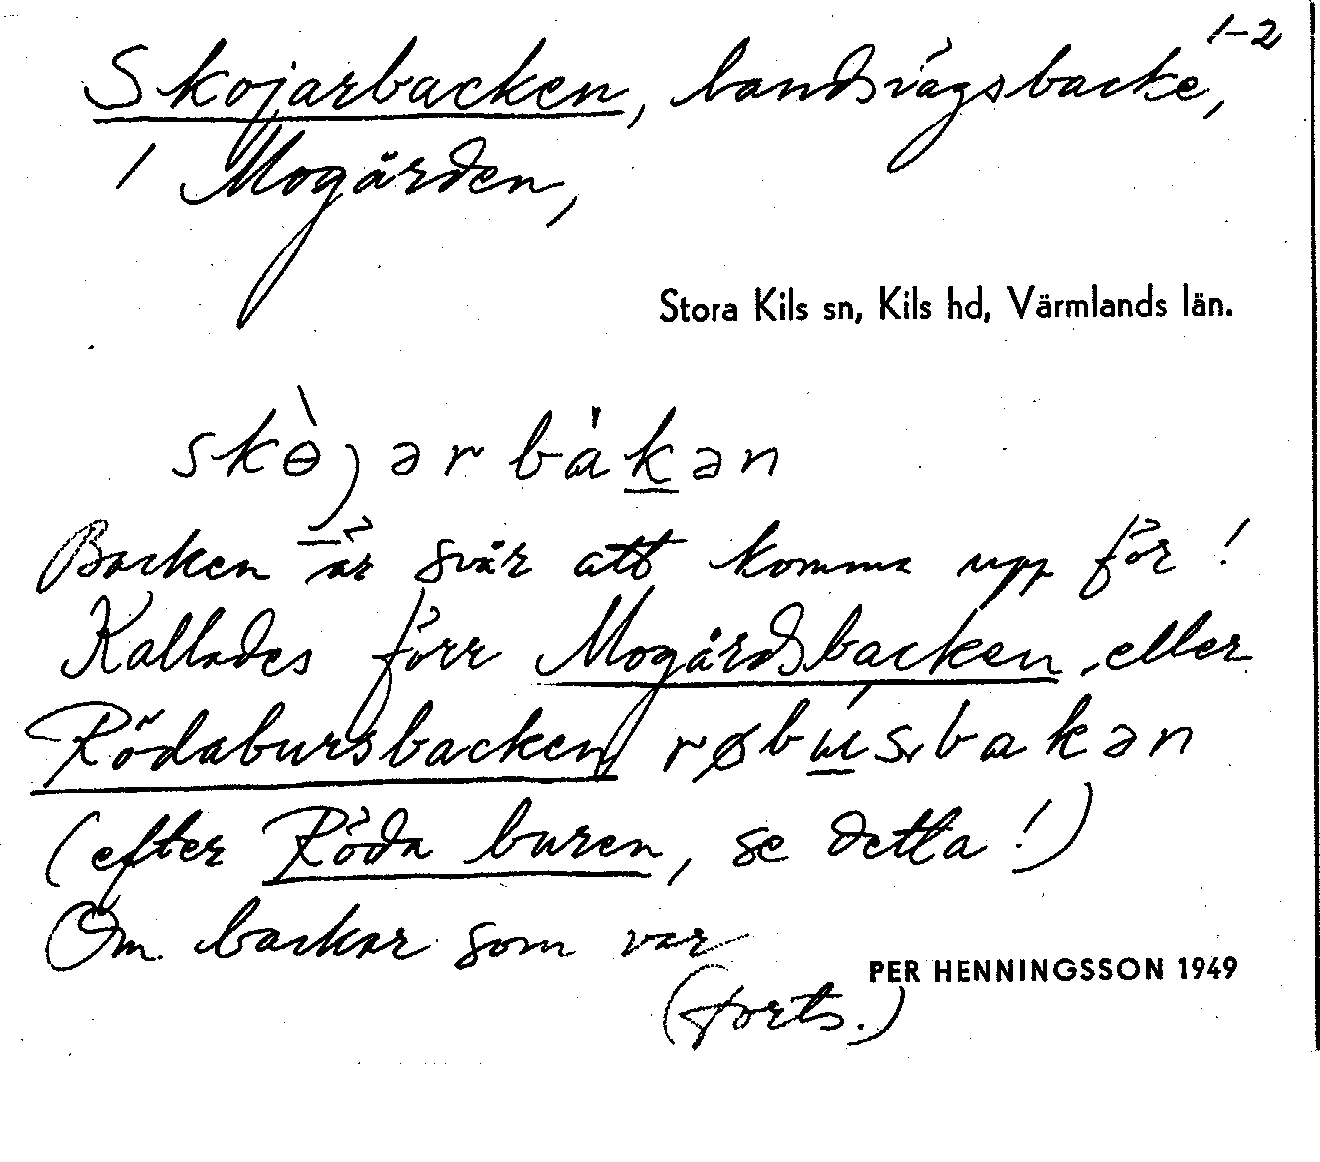 1-2
Skojarbacken, landsvägsbacke,
i Mogården,
Stora Kils sn, Kils hd, Värmlands län.
skɵ̀jərbàkən
Backen är svår att komma upp för!
Kallades förr Mogårdsbacken eller
Rödabursbacken røbúsbakən
(efter Röda buren, se detta!)
Om backar som var
PER HENNINGSSON 1949
(forts.)